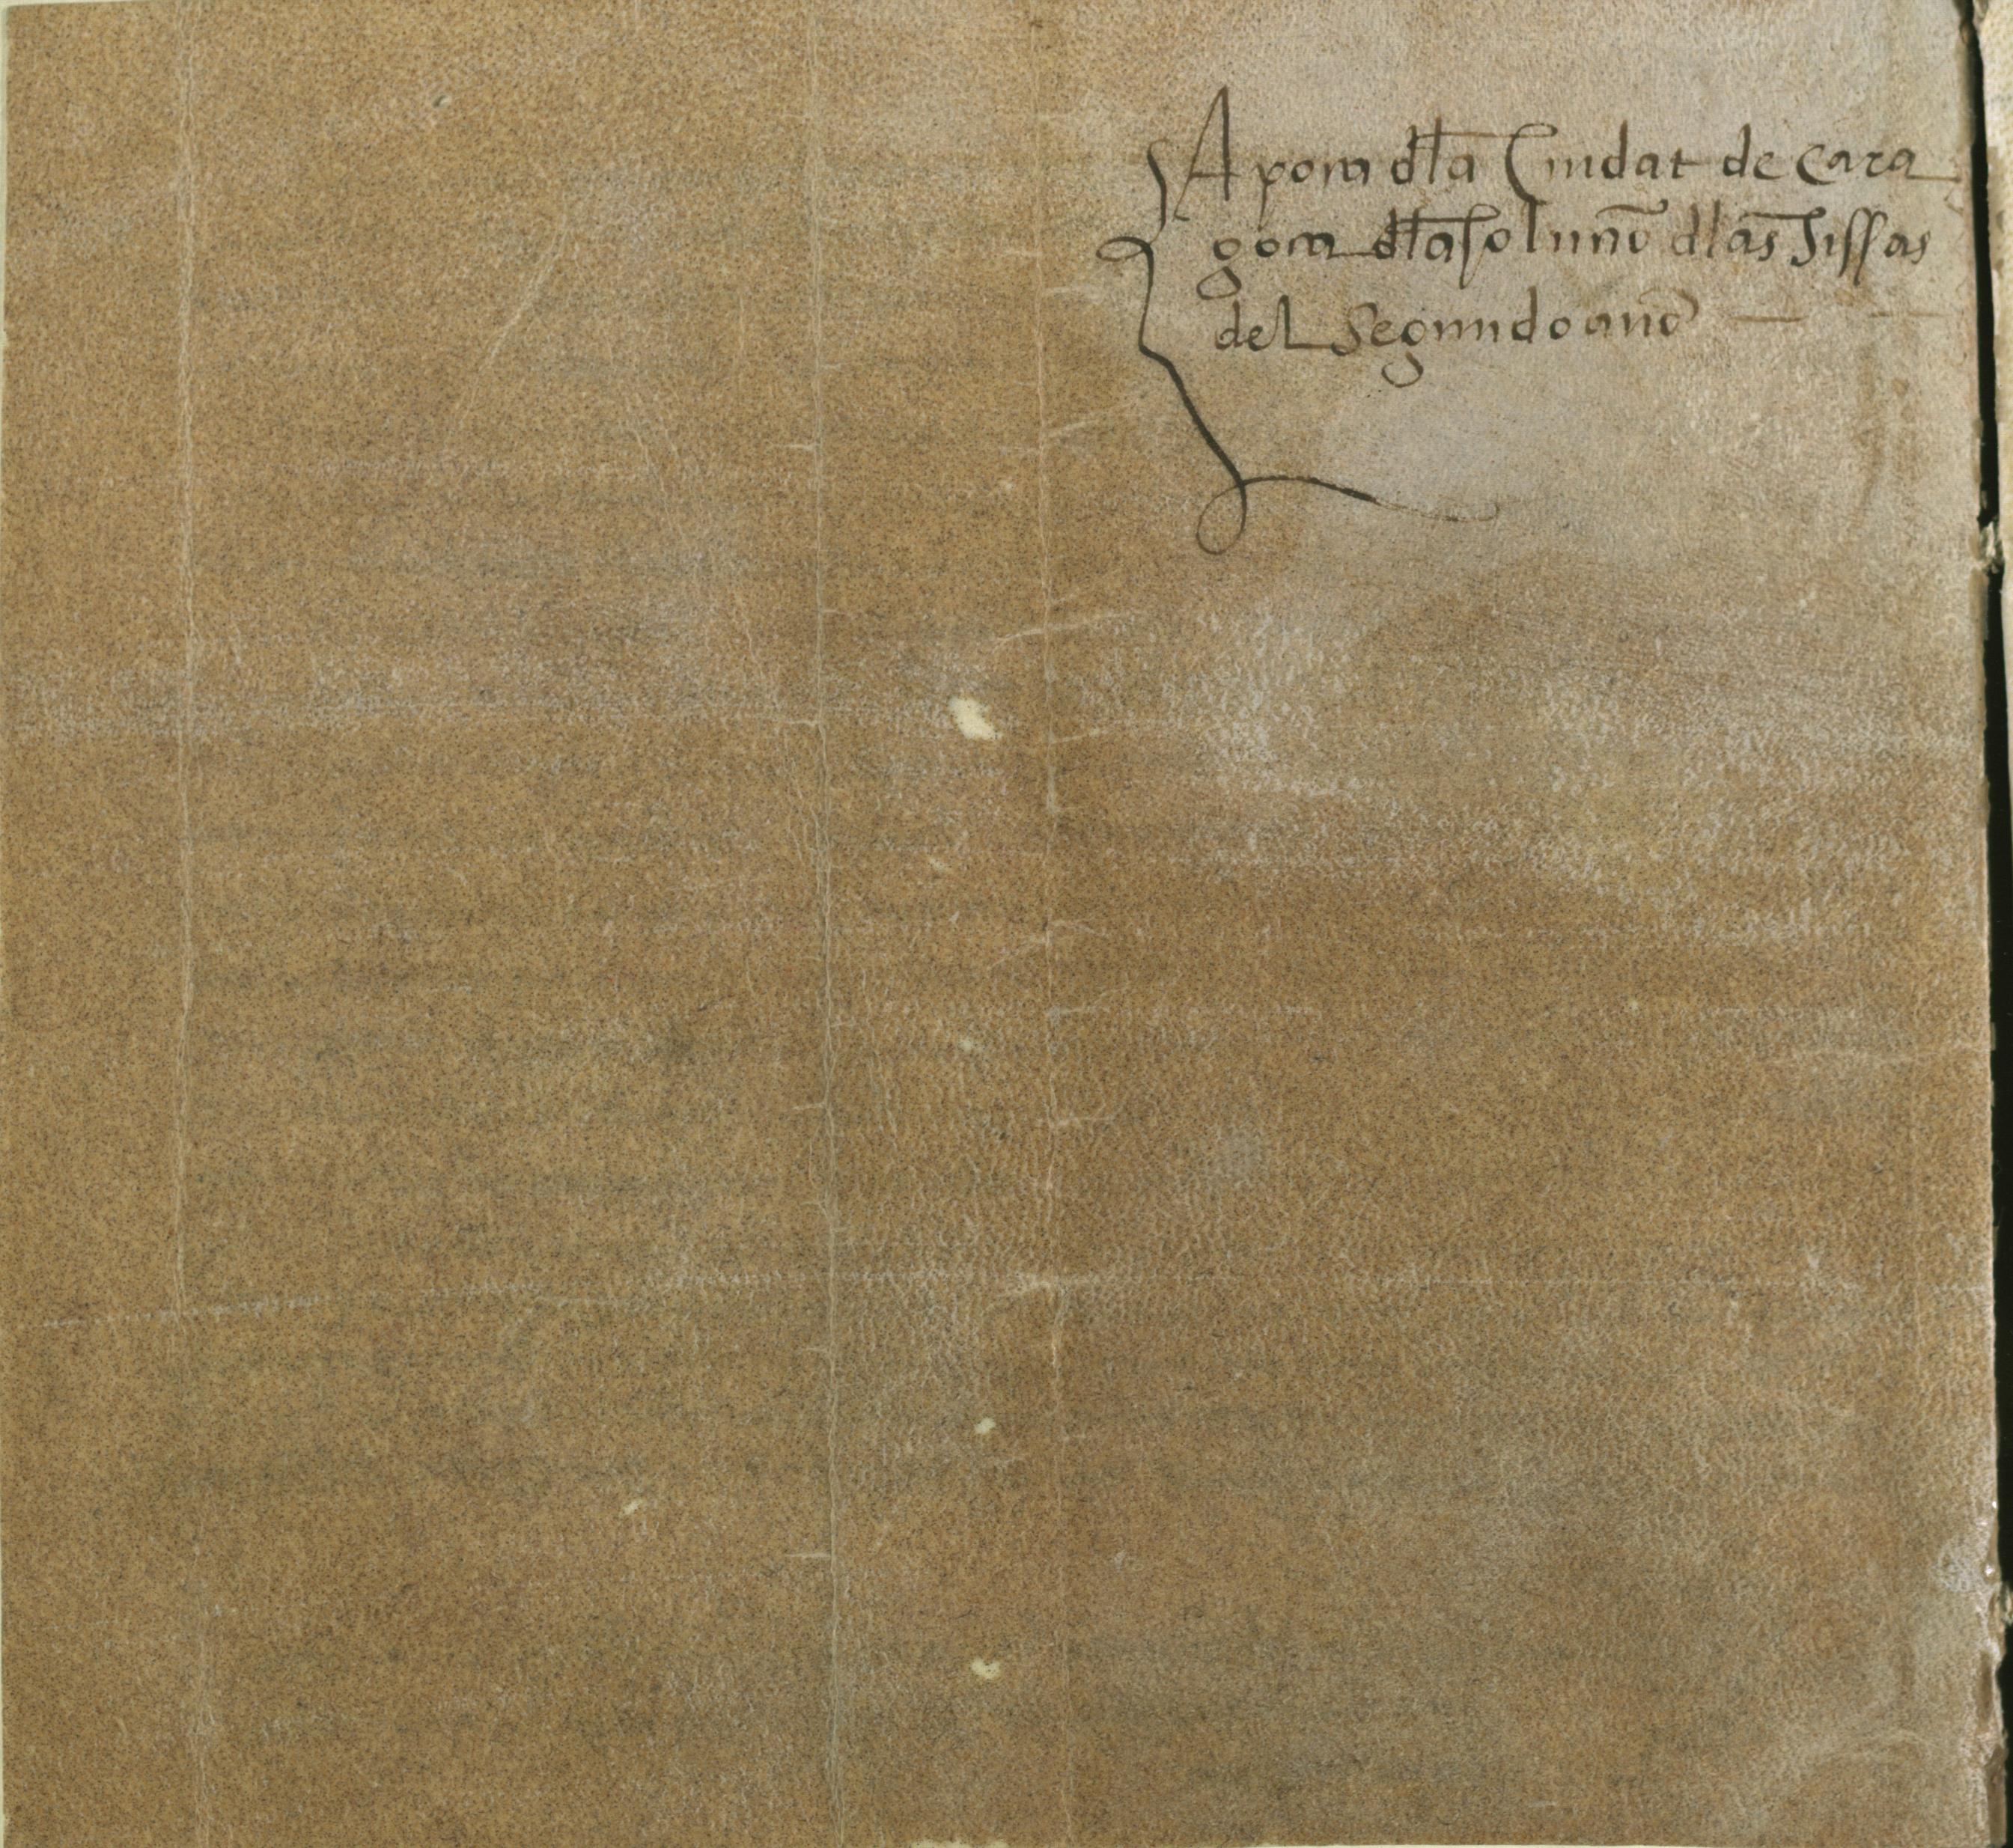 Apoca dla Ciudat de Cara
goca dla soluno dlas sissas
del Segundo ano